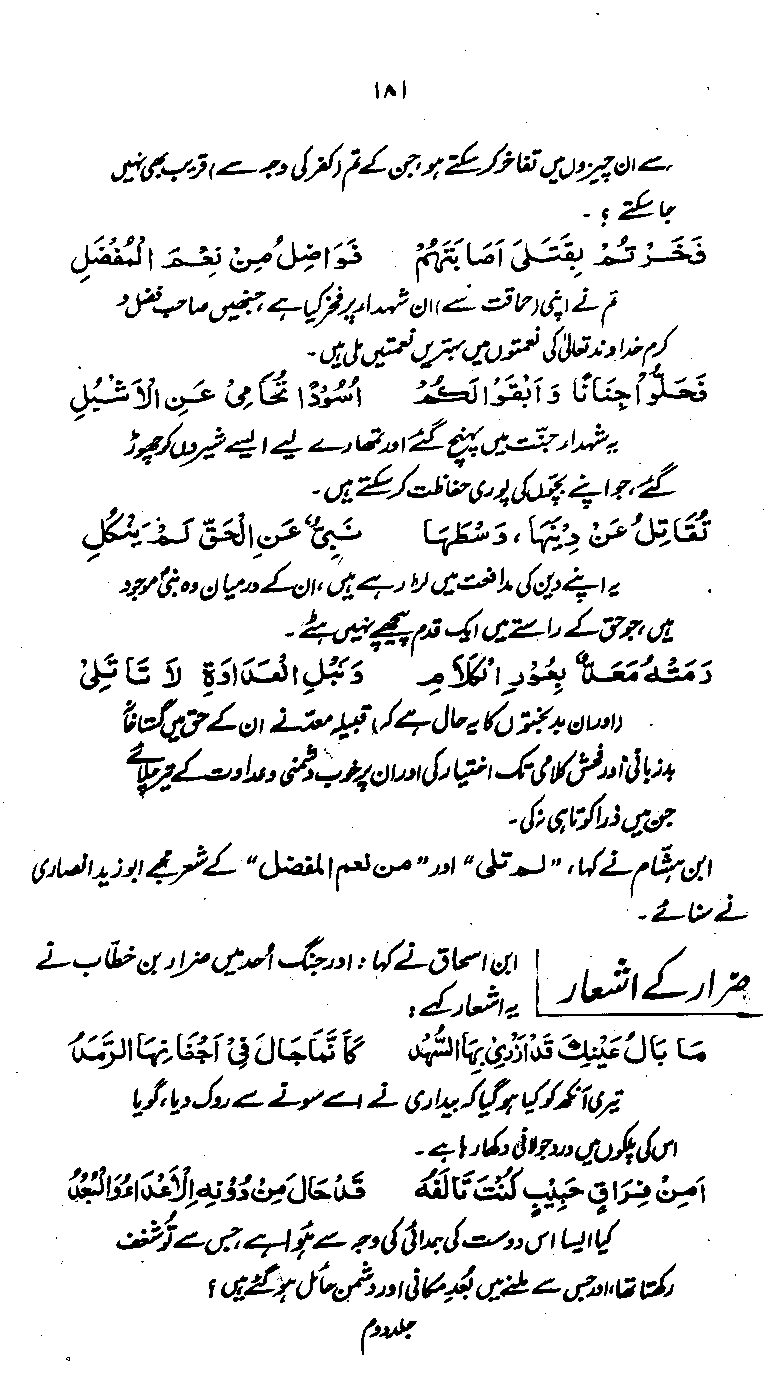 ۱۸۱
سے ان چیزوں میں تفاخر کر سکتے ہو، جن کے تم (کفر کی وجہ سے) قریب بھی نہیں
جا سکتے ؟ -
فَخَرْتُمْ بِقَتْلَى أَصَابَتْهُمْ فَوَاضِلُ مِنْ نِعَمِ الْمُفْضَلِ
تم نے اپنی (حماقت سے) ان شہداء پر فخر کیا ہے، جنھیں صاحب فضل و
کرم خداوند تعالیٰ کی نعمتوں میں بہترین نعمتیں ملی ہیں -
فَحَلُّوا جِنَانًا وَأَبْقَوْا لَكُمْ أُسُوْدًا تُحَامِيْ عَنِ الْأَشْبُلِ
یہ شہداء جنت میں پہنچ گئے اور تمھارے لیے ایسے شیروں کو چھوڑ
گئے، جو اپنے بچوں کی پوری حفاظت کر سکتے ہیں -
تُقَاتِلُ عَنْ دِيْنِهَا، وَسْطَهَا نَبِيٌّ عَنِ الْحَقِّ لَمْ يَنْكُلِ
یہ اپنے دین کی مدافعت میں لڑ رہے ہیں، ان کے درمیان وہ نبی موجود
ہیں، جو حق کے راستے میں ایک قدم پیچھے نہیں ہٹے -
رَمَتْهُ مَعَدٌّ بِعُوْرِ الْكَلَامِ وَنَبْلِ الْعَدَاوَةِ لَا تَأْتَلِيْ
(اور ان بدبختوں کا یہ حال ہے کہ) قبیلہ معد نے ان کے حق میں گستاخانہ
بدزبانی اور فحش کلامی تک اختیار کی اور ان پر خوب دشمنی و عداوت کے تیر چلائے
جن میں ذرا کوتاہی نہ کی -
ابن ہشام نے کہا، "لم تلی" اور "من نعم المفضل" کے شعر مجھے ابو زید انصاری
نے سنائے -
ضرار کے اشعار
ابن اسحاق نے کہا : اور جنگ اُحد میں ضرار بن خطاب نے
یہ اشعار کہے :
مَا بَالُ عَيْنِكَ قَدْ أَزْرَى بِهَا السُّهُدُ كَأَنَّمَا جَالَ فِيْ أَجْفَانِهَا الرَّمَدُ
تیری آنکھ کو کیا ہو گیا کہ بیداری نے اسے سونے سے روک دیا، گویا
اس کی پلکوں میں درد جولانی دکھا رہا ہے -
أَمِنْ فِرَاقِ حَبِيْبٍ كُنْتَ تَأْلَفُهُ قَدْ حَالَ مِنْ دُوْنِهِ الْأَعْدَاءُ وَالْبُعُدُ
کیا ایسا اس دوست کی جدائی کی وجہ سے ہوا ہے، جس سے تو شغف
رکھتا تھا، اور جس سے ملنے میں بُعدِ مکانی اور دشمن حائل ہو گئے ہیں ؟
جلد دوم